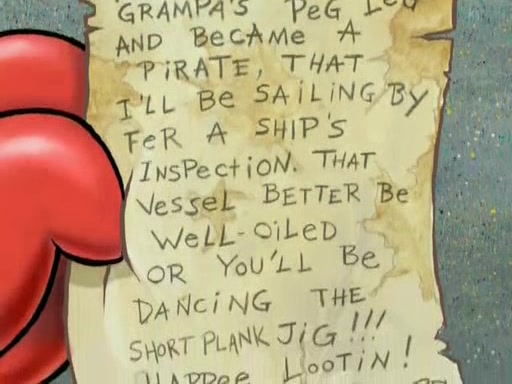 GRAMPA'S PeG LeG
AND BeCAMe A
PiRATE, THAT
I'LL Be SAiLiNG BY
FeR A SHIP'S
INSPecTiON. THAT
VesseL BETTER Be
WeLL-OiLeD
OR YOU'LL Be
DANCiNG THE
SHORT PLANK JiG!!!
HAPPee LOOTiN!